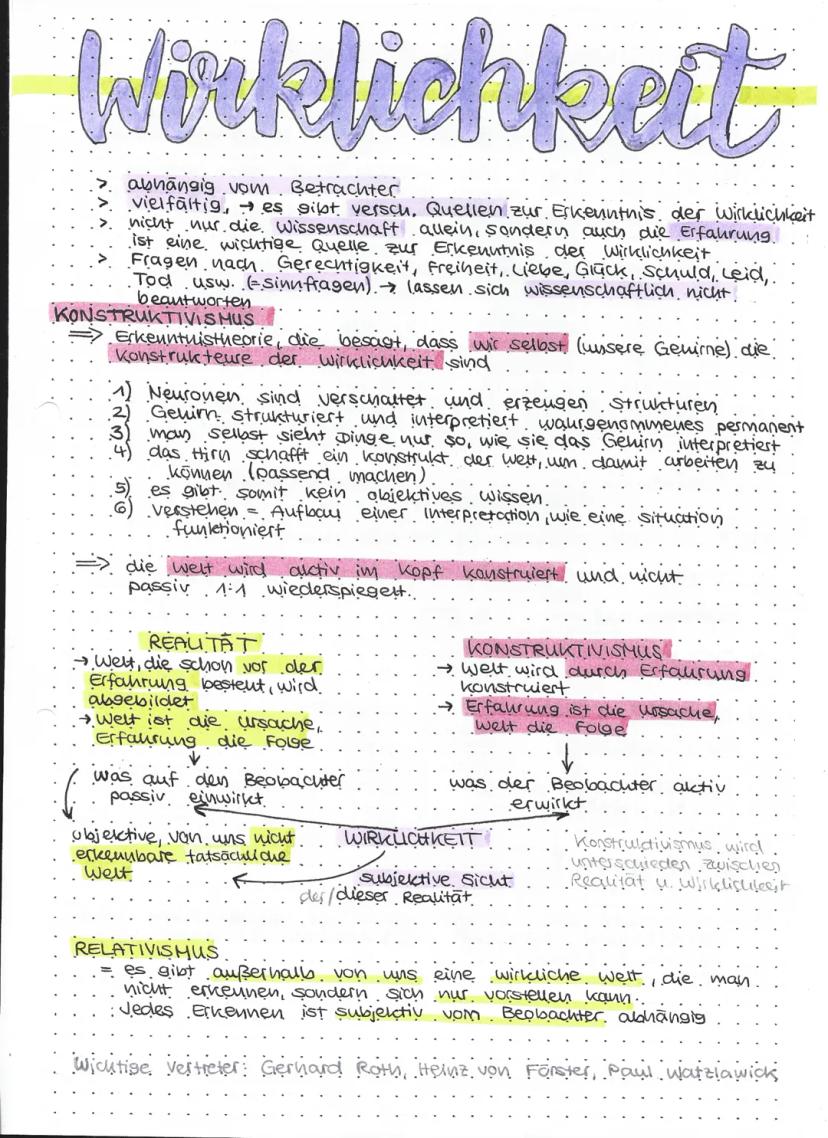 Wirklichkeit
> abhängig vom Betrachter
> vielfältig, → es gibt versch. Quellen zur Erkenntnis der Wirklichkeit
> nicht nur die Wissenschaft allein, sondern auch die Erfahrung
ist eine wichtige Quelle zur Erkenntnis der Wirklichkeit
> Fragen nach Gerechtigkeit, Freiheit, Liebe, Glück, Schuld, Leid,
Tod usw. (=Sinnfragen) → lassen sich wissenschaftlich nicht
beantworten
KONSTRUKTIVISMUS
⇒ Erkenntnistheorie, die besagt, dass wir selbst (unsere Gehirne) die
Konstrukteure der Wirklichkeit sind
1) Neuronen sind verschaltet und erzeugen Strukturen
2) Gehirn strukturiert und interpretiert wahrgenommenes permanent
3) man selbst sieht Dinge nur so, wie sie das Gehirn interpretiert
4) das Hirn schafft ein Konstrukt der Welt, um damit arbeiten zu
können (passend machen)
5) es gibt somit kein objektives Wissen
6) Verstehen = Aufbau einer Interpretation, wie eine Situation
funktioniert
⇒ die Welt wird aktiv im Kopf konstruiert und nicht
passiv 1:1 wiederspiegelt.
REALITÄT
→ Welt, die schon vor der
Erfahrung besteht, wird
abgebildet
→ Welt ist die Ursache,
Erfahrung die Folge
was auf den Beobachter
passiv einwirkt
objektive, von uns nicht
erkennbare tatsächliche
Welt
KONSTRUKTIVISMUS
→ Welt wird durch Erfahrung
konstruiert
→ Erfahrung ist die Ursache,
Welt die Folge
was der Beobachter aktiv
erwirkt
WIRKLICHKEIT
subjektive Sicht
der/dieser Realität
Konstruktivismus wird
unterschieden zwischen
Realität u. Wirklichkeit
RELATIVISMUS
= es gibt außerhalb von uns eine wirkliche Welt, die man
nicht erkennen, sondern sich nur vorstellen kann.
Jedes Erkennen ist subjektiv vom Beobachter abhängig
Wichtige Vertreter: Gerhard Roth, Heinz von Förster, Paul Watzlawick